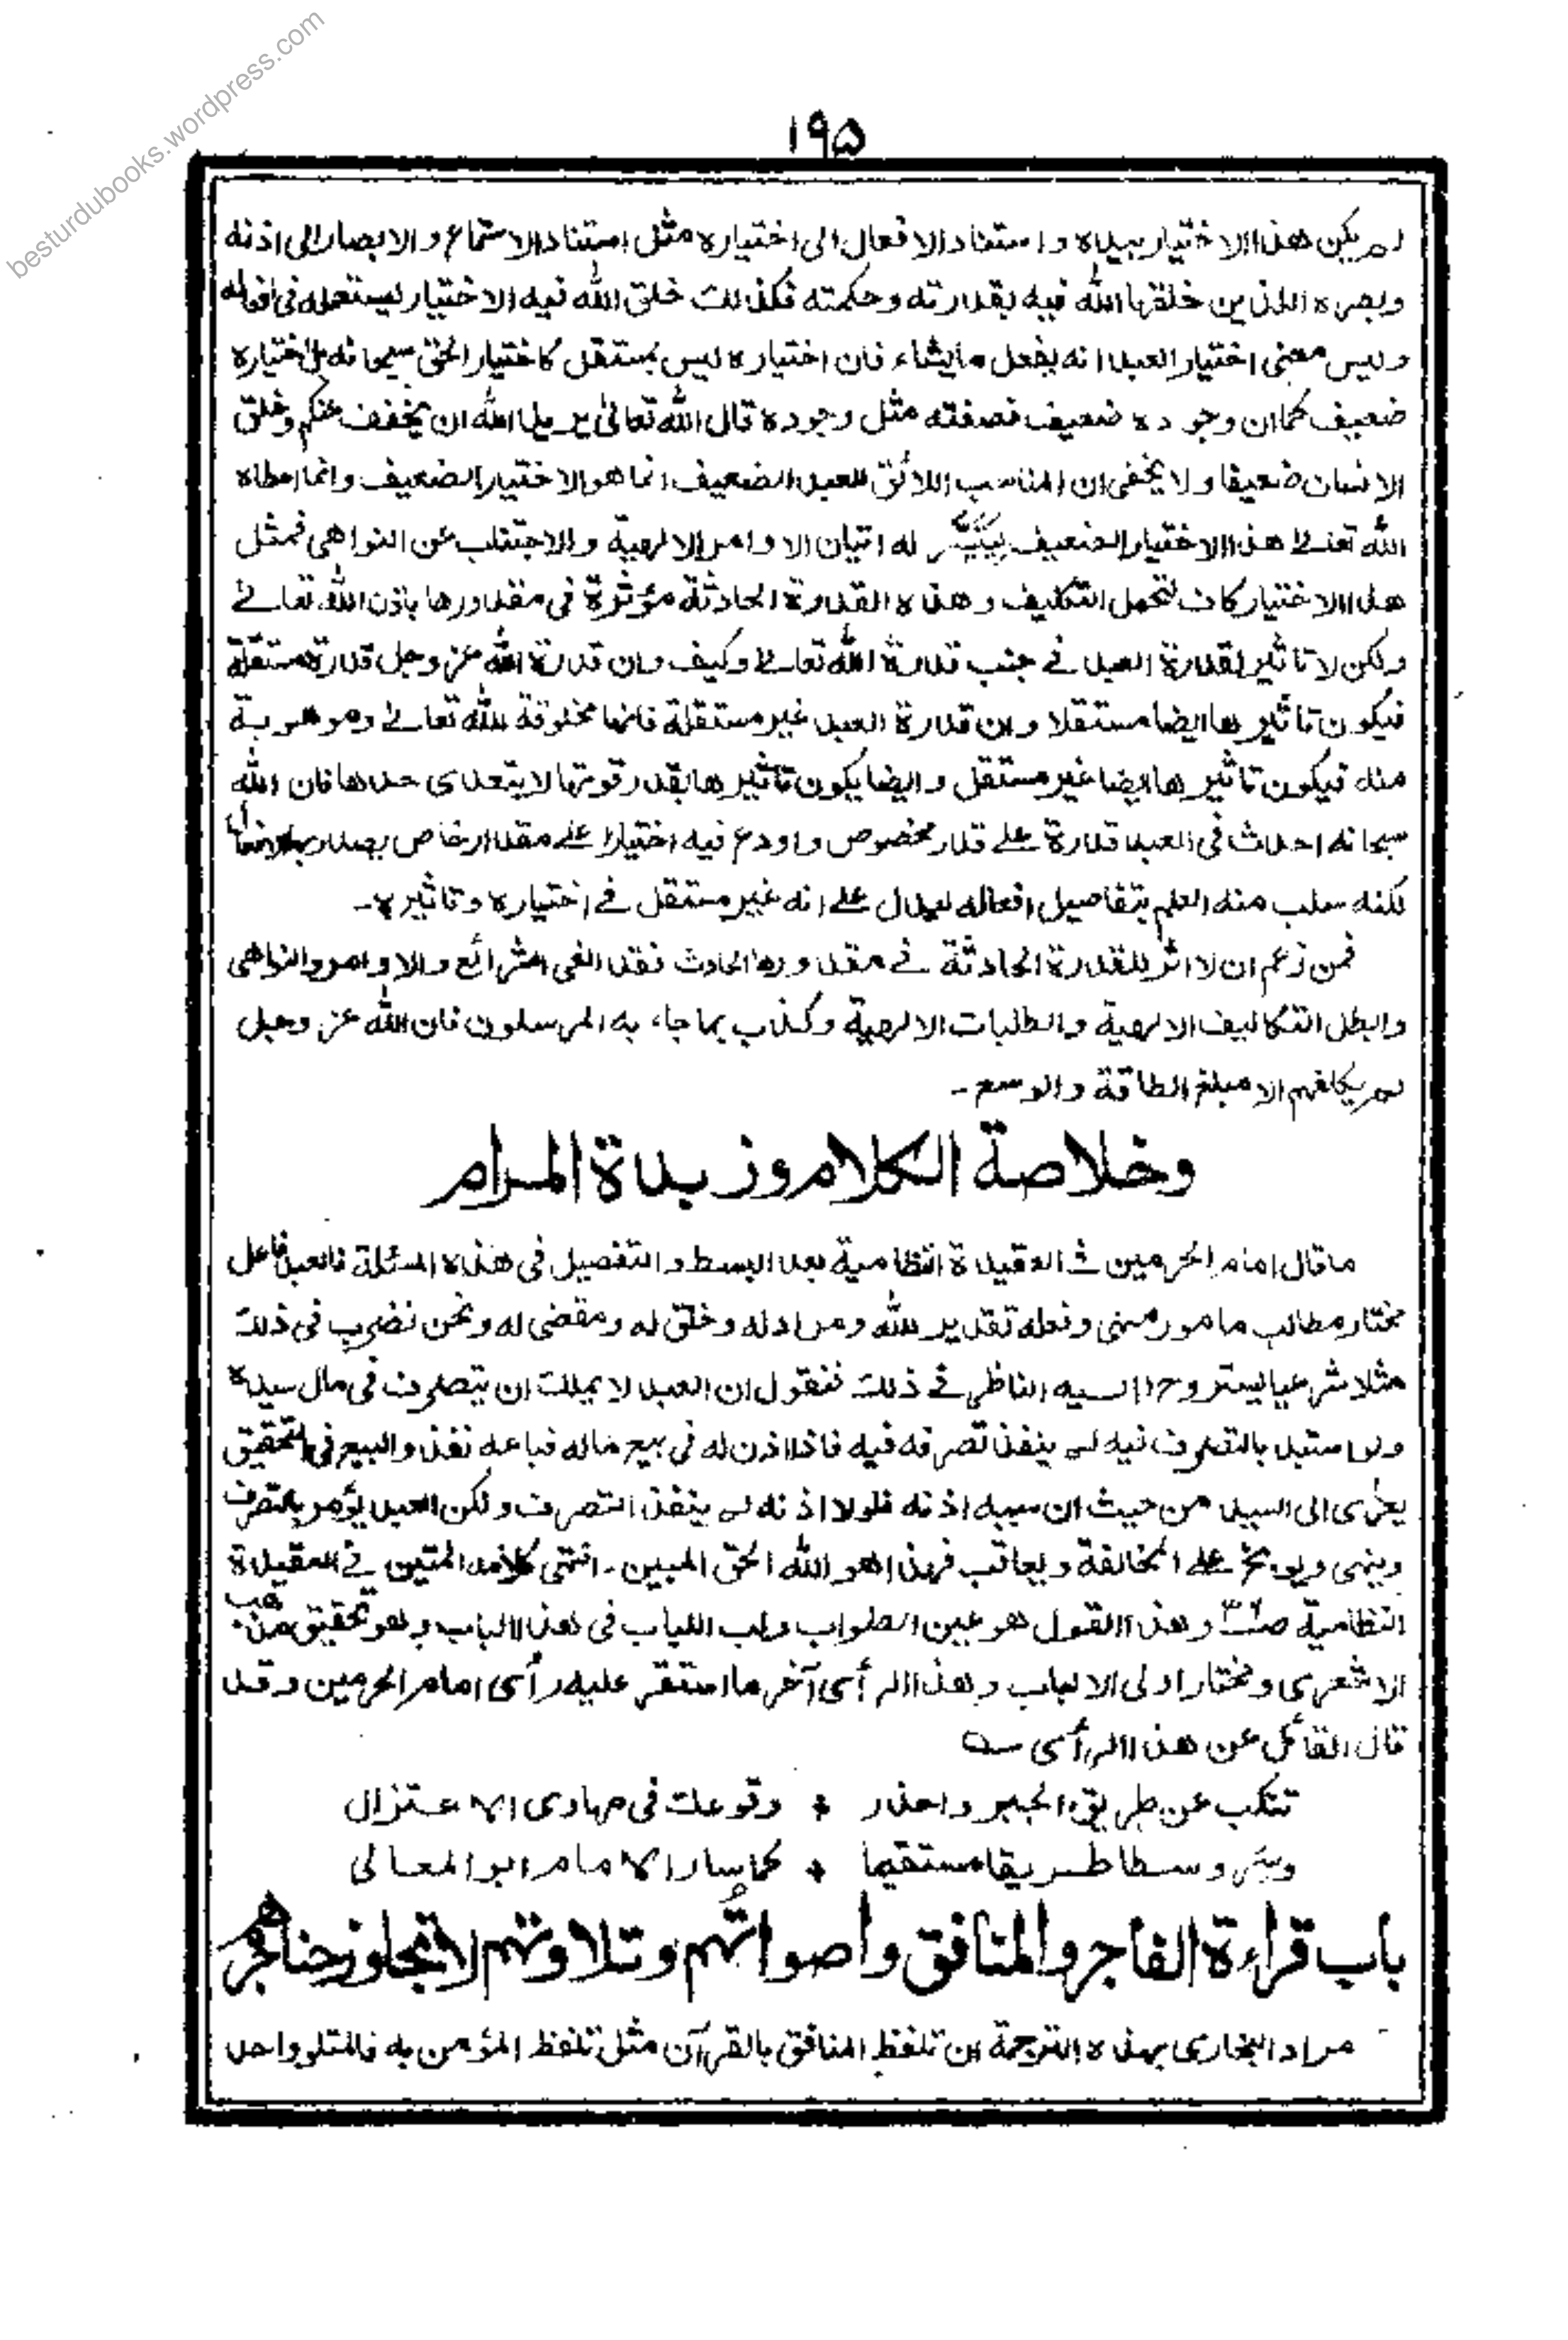 besturdubooks.wordpress.com
۱۹۵
لم يكن هذا الاختيار بيده و استناد الافعال الى اختياره مثل استناد الاستماع و الابصار الى اذنه
وبصره اللذين خلقها الله فيه بقدرته وحكمته فكذلك خلق الله فيه الاختيار ليستعمله فى افعاله
وليس معنى اختيار العبد انه يفعل ما يشاء فان اختياره ليس بمستقل كاختيار الحق سبحانه بل اختياره
ضعيف كما ان وجوده ضعيف فصفته مثل وجوده قال الله تعالىٰ يريد الله ان يخفف عنكم وخلق
الانسان ضعيفا ولا يخفى ان المناسب اللائق للعبد الضعيف انما هو الاختيار الضعيف وانما اعطاه
الله تعالے هذا الاختيار الضعيف ليتيسر له اتيان الاوامر الالهية والاجتناب عن النواهى فمثل
هذا الاختيار كاف لتحمل التكليف وهذه القدرة الحادثة مؤثرة فى مقدورها باذن الله تعالے
ولكن لا تاثير لقدرة العبد فے جنب قدرة الله تعالے وكيف وان قدرة الله عز وجل قدرة مستقلة
فيكون تاثيرها ايضا مستقلا وان قدرة العبد غير مستقلة فانها مخلوقة لله تعالے وموهوبة
منه فيكون تاثيرها ايضا غير مستقل وايضا يكون تاثيرها بقدر قوتها لا يتعدى حدها فان الله
سبحانه احدث فى العبد قدرة علے قدر مخصوص واودع فيه اختيارا علے مقدار خاص يصدر بها افعال
لكنه سلب منه العلم بتفاصيل افعاله ليدل علے انه غير مستقل فے اختياره وتاثيره۔
فمن زعم ان لا اثر للقدرة الحادثة فے مقدورها الحادث فقد الغى الشرائع والاوامر والنواهى
وابطل التكاليف الالهية والطلبات الالهية وكذب بما جاء به المرسلون فان الله عز وجل
لم يكلفهم الا مبلغ الطاقة والوسع۔
وخلاصة الكلام وزبدة المرام
ما قال امام الحرمين فے العقيدة النظامية بعد البسط والتفصيل فى هذه المسئلة فالعبد فاعل
مختار مطالب مامور منهى وفعله تقدير لله ومراد له وخلق له ومقضى له ونحن نضرب فى ذلك
مثلا شرعيا يستروح اليه الناظر فے ذلك فنقول ان العبد لا يملك ان يتصرف فى مال سيده
ولو استبد بالتصرف فيه لم ينفذ تصرفه فيه فاذا اذن له فى بيع ماله فباعه نفذ والبيع فى التحقيق
يعزى الى السيد من حيث ان سببه اذنه فلولا اذنه لم ينفذ التصرف ولكن العبد يؤمر بالتصرف
وينهى ويوبخ علے المخالفة ويعاقب فهذا هو الله الحق المبين۔ انتهى كلامه المتين فے العقيدة
النظامية وهذا القول هو عين الصواب ولب اللباب فى هذا الباب وهو تحقيق مذهب
الاشعرى ومختار اولى الالباب وهذا الرأى آخر ما استقر عليه رأى امام الحرمين وقد
قال القائل عن هذا الرأى
تنكب عن طريق الجبر واحذر ٭ وقوعك فى مهاوى الاعتزال
وسر وسطا طريقا مستقيما ٭ كما سار الامام ابو المعالى
باب قراءة الفاجر والمنافق واصواتهم وتلاوتهم لا تجاوز حناجرهم
مراد البخارى بهذه الترجمة ان تلفظ المنافق بالقرآن مثل تلفظ المؤمن به فالمتلو واحد